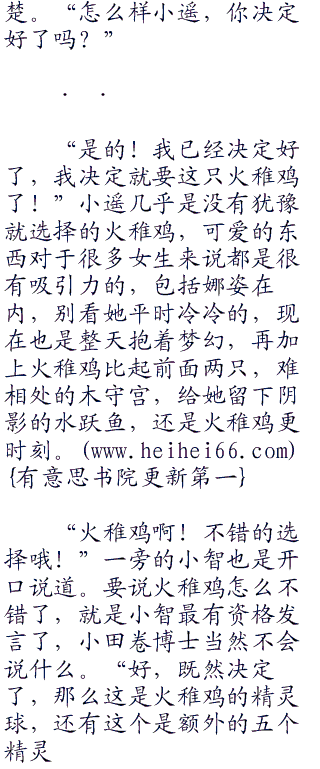 楚。“怎么样小遥，你决定
好了吗？”
．．
“是的！我已经决定好
了，我决定就要这只火稚鸡
了！”小遥几乎是没有犹豫
就选择的火稚鸡，可爱的东
西对于很多女生来说都是很
有吸引力的，包括娜姿在
内，别看她平时冷冷的，现
在也是整天抱着梦幻，再加
上火稚鸡比起前面两只，难
相处的木守宫，给她留下阴
影的水跃鱼，还是火稚鸡更
时刻。(www.heihei66.com)
{有意思书院更新第一}
“火稚鸡啊！不错的选
择哦！”一旁的小智也是开
口说道。要说火稚鸡怎么不
错了，就是小智最有资格发
言了，小田卷博士当然不会
说什么。“好，既然决定
了，那么这是火稚鸡的精灵
球，还有这个是额外的五个
精灵